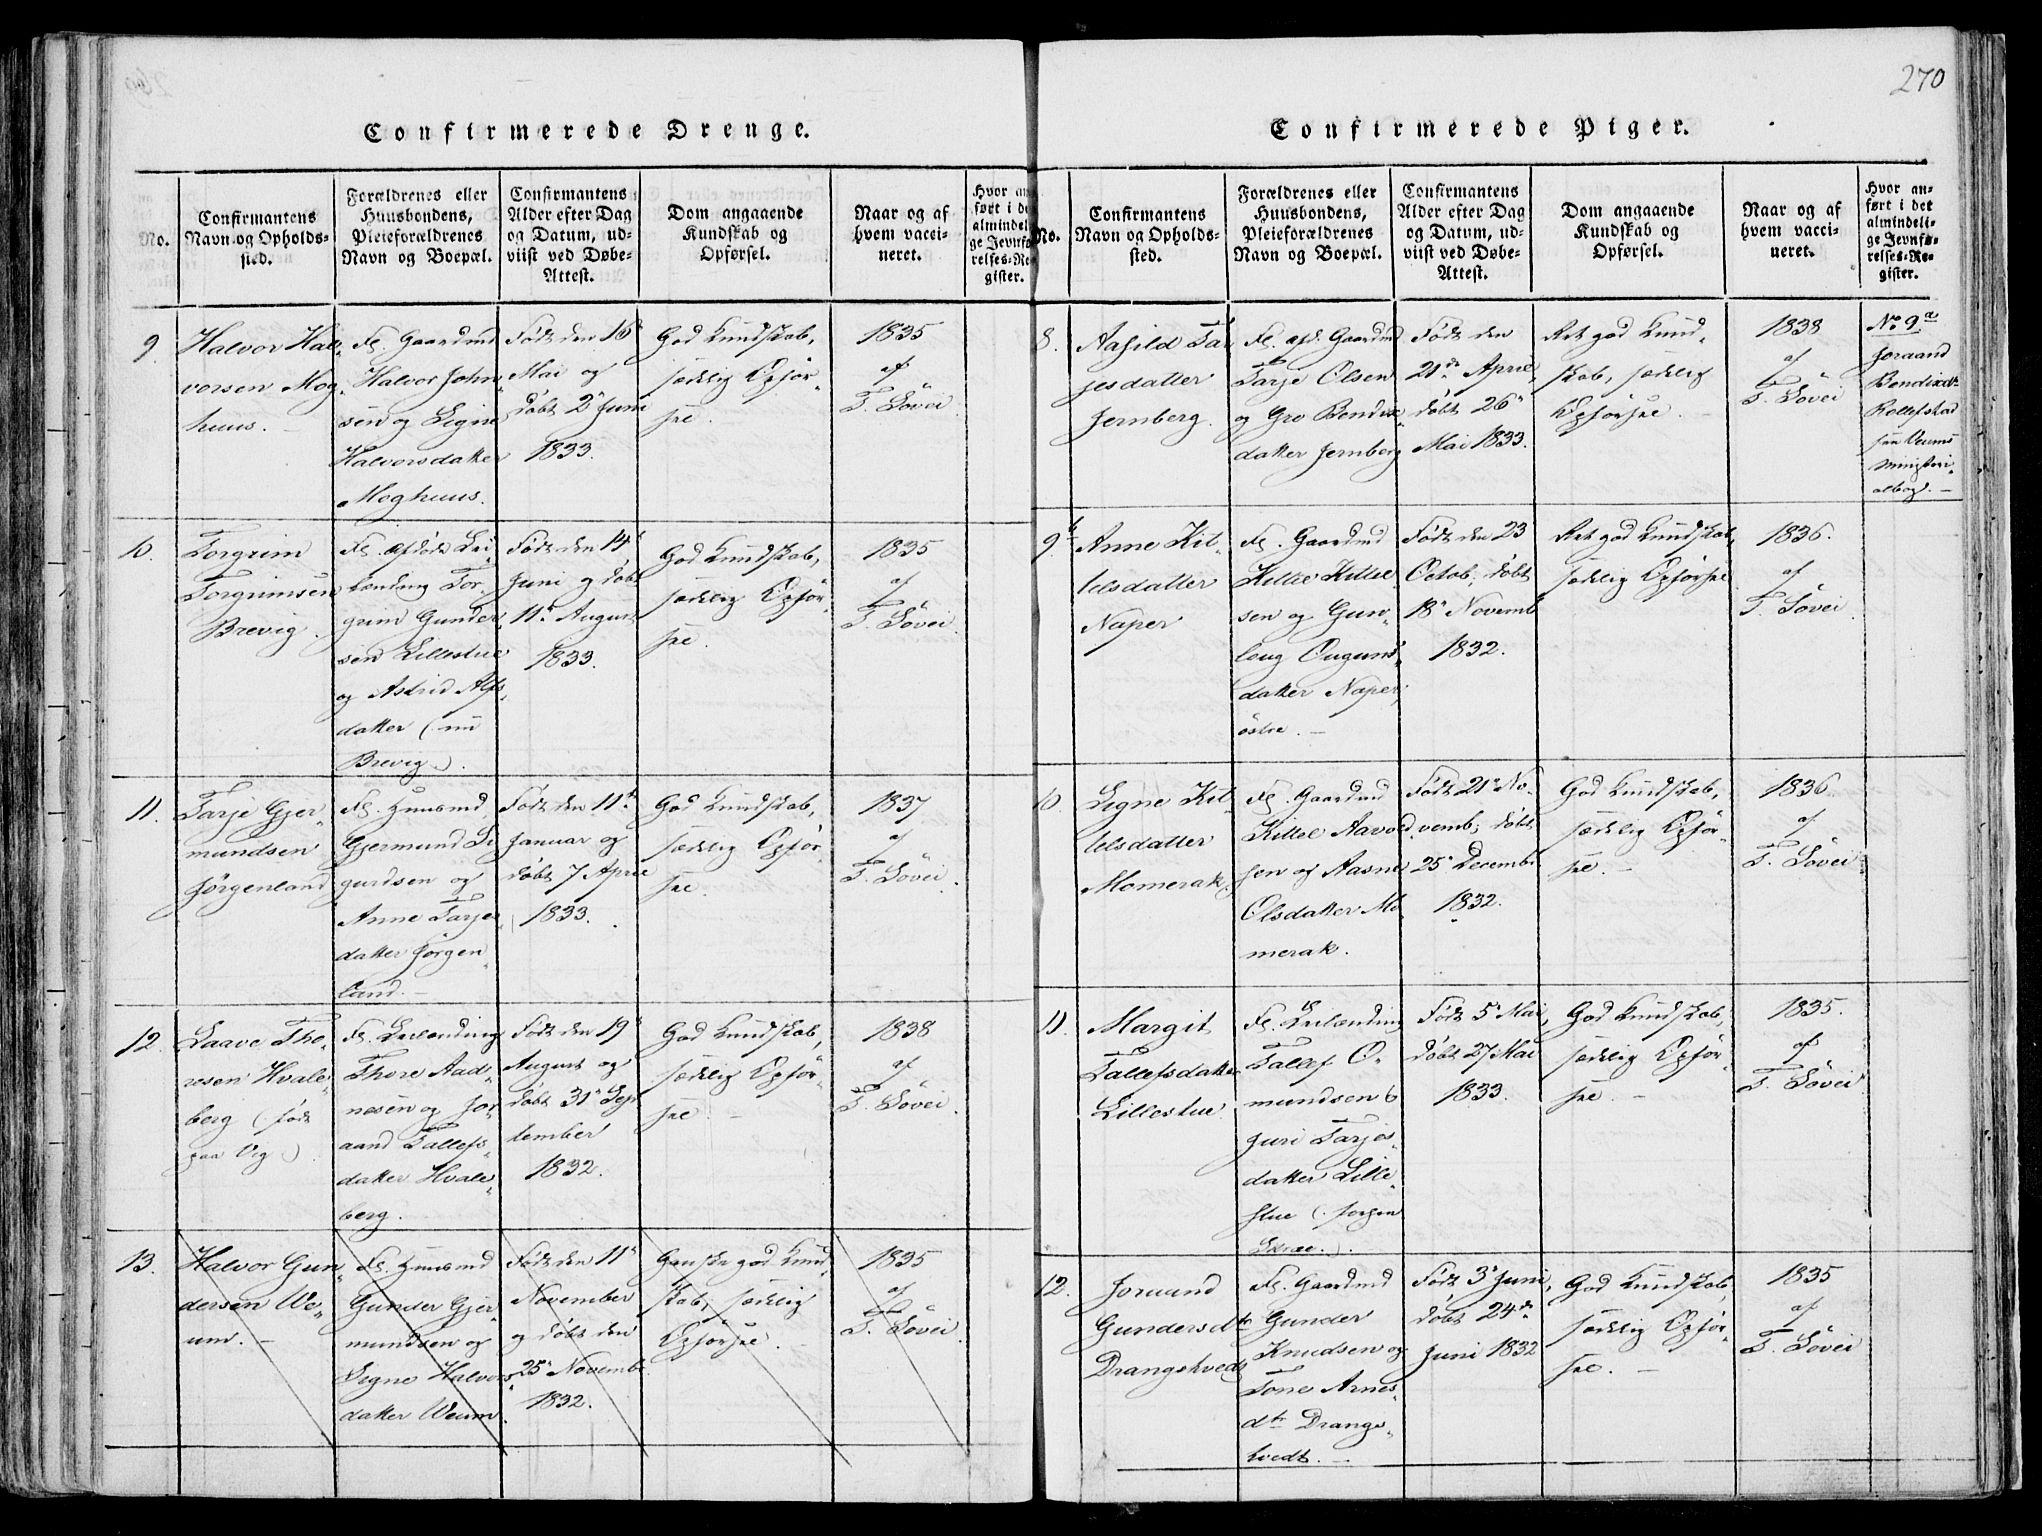 270
Confirmerede Drenge.
No.
Confirmantens
Navn og Opholds-
sted.
Forældrenes eller
Huusbondens,
Pleieforældrenes
Navn og Boepæl.
Confirmantens
Alder efter Dag
og Datum, ud-
viist ved Døbe-
Attest.
Dom angaaende
Kundskab og
Opførsel.
Naar og af
hvem vacci-
neret.
Hvor an
ført i de
almindel
ge Jevnfø
relses-Re
gister.
9.
Halvor Hal-
vorsen Mog-
huus.
Fl. Gaardmd
Halvor John-
sen og Signe
Halvorsdatter
Moghuus.
Født den 16de
Mai og
døbt 2den Juni
1833.
God Kundskab,
sædelig Opfør-
sel.
1835
af
T. Søvei.
10.
Torgrim
Torgrimsen
Brevig.
Fl. afdøde Lei-
lending Tor-
grim Gunder-
sen Lillestue
og Astrid Alfs-
datter (nu
Brevig).
Født den 14de
Juni og døbt
11te August
1833.
God Kundskab,
sædelig Opfør-
sel.
1835
af
T. Søvei.
11.
Tarje Gjer-
mundsen
Jørgenland
Fl. Huusmd
Gjermund Si-
gurdsen og
Anne Tarje-
datter Jørgen-
land.
Født den 11te
Januar og
døbt 7 April
1833.
God Kundskab,
sædelig Opfør-
sel.
1837
af
T. Søvei.
12.
Saave Tho-
resen Hvale-
berg (født
paa Vig).
Fl. Leilending
Thore Aad-
nesen og Jor-
aand Tallefs-
datter Hvale-
berg.
Født den 19de
August og
døbt 31te Sep-
tember
1832.
God Kundskab,
sædelig Opfør-
sel.
1838
af
T. Søvei.
13.
Halvor Gun-
dersen We-
um.
Fl. Huusmd
Gunder Gjer-
mundsen og
Signe Halvors-
datter Weum.
Født den 11te
November
og døbt den
25de Novemb.
1832.
Ganske god Kund-
skab, sædelig
Opførsel.
1835
af
T. Søvei.
Confirmerede Piger.
No.
Confirmantens
Navn og Opholds-
sted.
Forældrenes eller
Huusbondens,
Pleieforældrenes
Navn og Boepæl.
Confirmantens
Alder efter Dag
og Datum, ud-
viist ved Døbe-
Attest.
Dom angaaende
Kundskab og
Opførsel.
Naar og af
hvem vacci-
neret.
Hvor an-
ført i det
almindeli-
ge Jevnfø-
relses-Re-
gister.
8.
Aasild Tar-
jesdatter
Jernberg.
Fl. afd. Gaardmd
Tarje Olsen
og Gro Bendix-
datter Jernberg
Født den
21de April,
døbt 26de
Mai 1833.
Ret god Kund-
skab, sædelig
Opførsel.
1838
af
T. Søvei
No 9a
Joraand
Bendixdtr
fra Veums
Ministeri-
albog.
9b
Anne Kit-
telsdatter
Naper
Fl. Gaardmd
Kittil Kittel-
sen og Gun-
laug Ougunds-
datter Naper,
østre.
Født den 23
Octob. døbt
18de Novemb
1832.
Ret god Kundskab,
sædelig Opførsel
1836.
af
T. Søvei
10.
Signe Kit-
telsdatter
Momerak,
Fl. Gaardmd
Kittel Aavold-
sen og Aasne
Olsdatter Mo-
merak.
Født 21de No-
vemb. døbt
25de Decembr
1832.
God Kundskab,
sædelig Opfør-
sel.
1836
af
T. Søvei
11.
Margit
Tallefsdatter
Lillestue.
Fl. Leilending
Tallef O-
mundsen og
Juri Tarjes-
datter Lille-
stue (
Skree.).
Født 5te Mai,
døbt 27 Mai
1833.
God Kundskab,
sædelig Opfør-
sel.
1835.
af
T. Søvei
12.
Jorund
Gundersdtr
Drangshvedt
Fl. Gaardmd
Gunder
Knudsen og
Tone Arnes-
dtr Drangs-
hvedt.
Født 3de Juni,
døbt 24de
Juni 1832
God Kundskab,
sædelig Opfør-
sel.
1835
af
T. Søvei